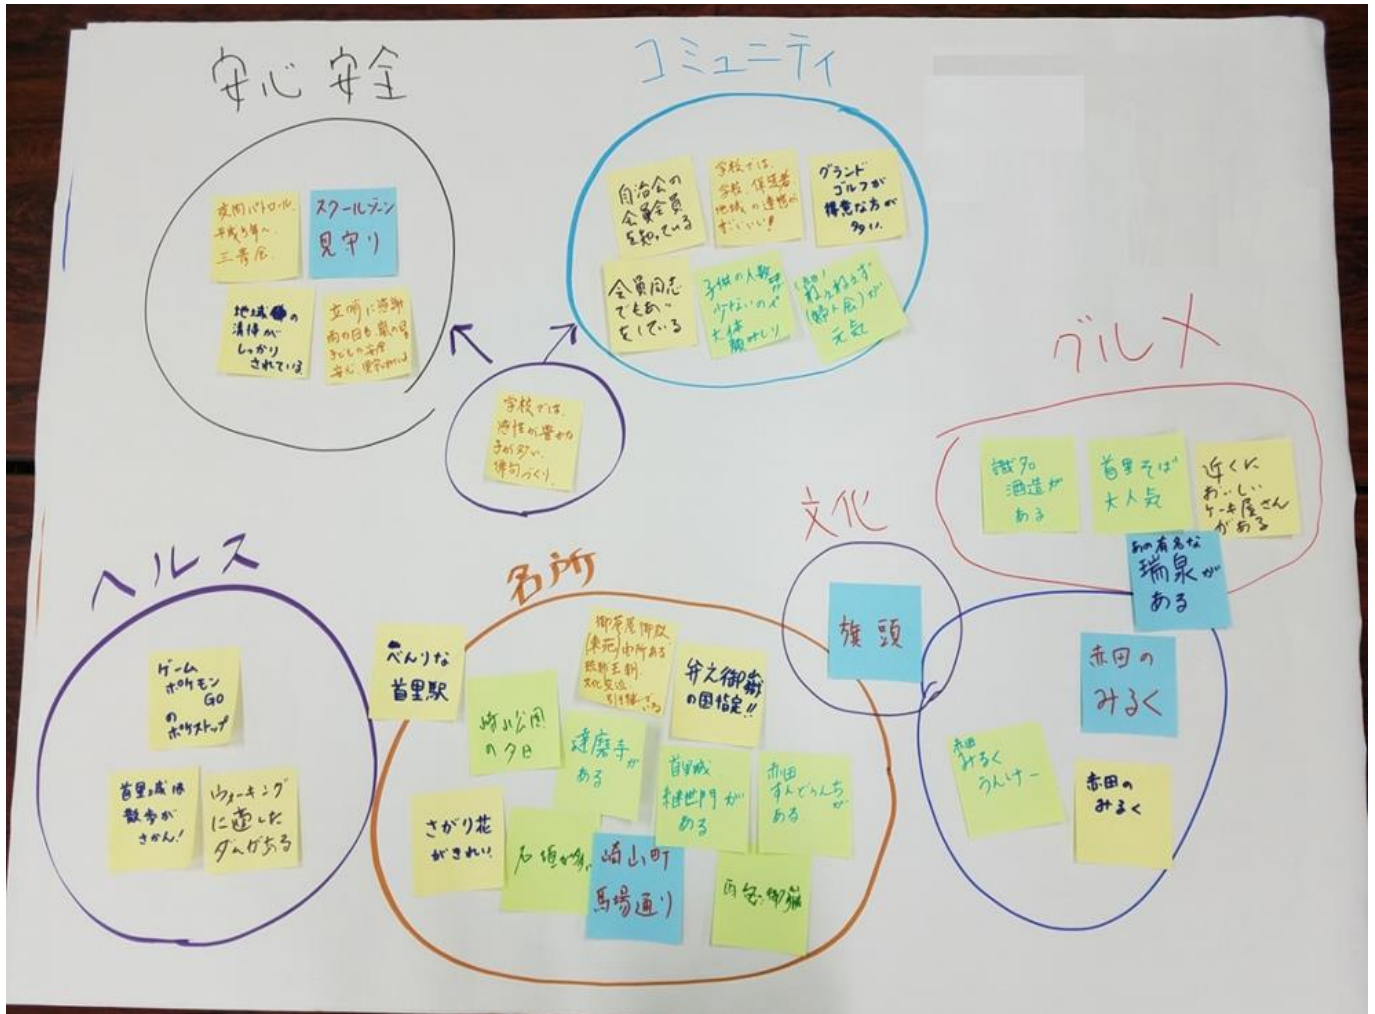 安心 安全
コミュニティ
夜間パトロール
三青会
スクールゾーン
見守り
地域の
清掃が
しっかり
されている
立哨に感謝
雨の日も嵐の日も
子どもの安全
安心
自治会の
会員全員
を知っている
学校では、
学校 保護者
地域の連携が
すごいい!
グランド
ゴルフが
得意な方が
多い
会員同志
でもあい
をしている
子供の人数が
少ないので
大体
顔みしり
(婦人会)が
元気
学校では、
感性が豊かな
子が多い、
俳句づくり
グルメ
識名
酒造が
ある
首里そば
大人気
近くに
おいしい
ケーキ屋さん
がある
あの有名な
瑞泉が
ある
文化
旗頭
赤田の
みるく
赤田
みるく
うんけー
赤田の
みるく
ヘルス
ゲーム
ポケモン
GO
の
ポケストップ
首里城は
散歩が
さかん!
ウォーキング
に適した
ダムがある
名所
べんりな
首里駅
御茶屋御殿
(東苑)由所ある
琉球王朝
文化
弁え御嶽
の国指定!!
崎山公園
の夕日
達磨寺が
ある
首里城
継世門が
ある
赤田
すんどぅんちが
ある
さがり花
がきれい
石垣が多い
崎山町
馬場通り
御嶽